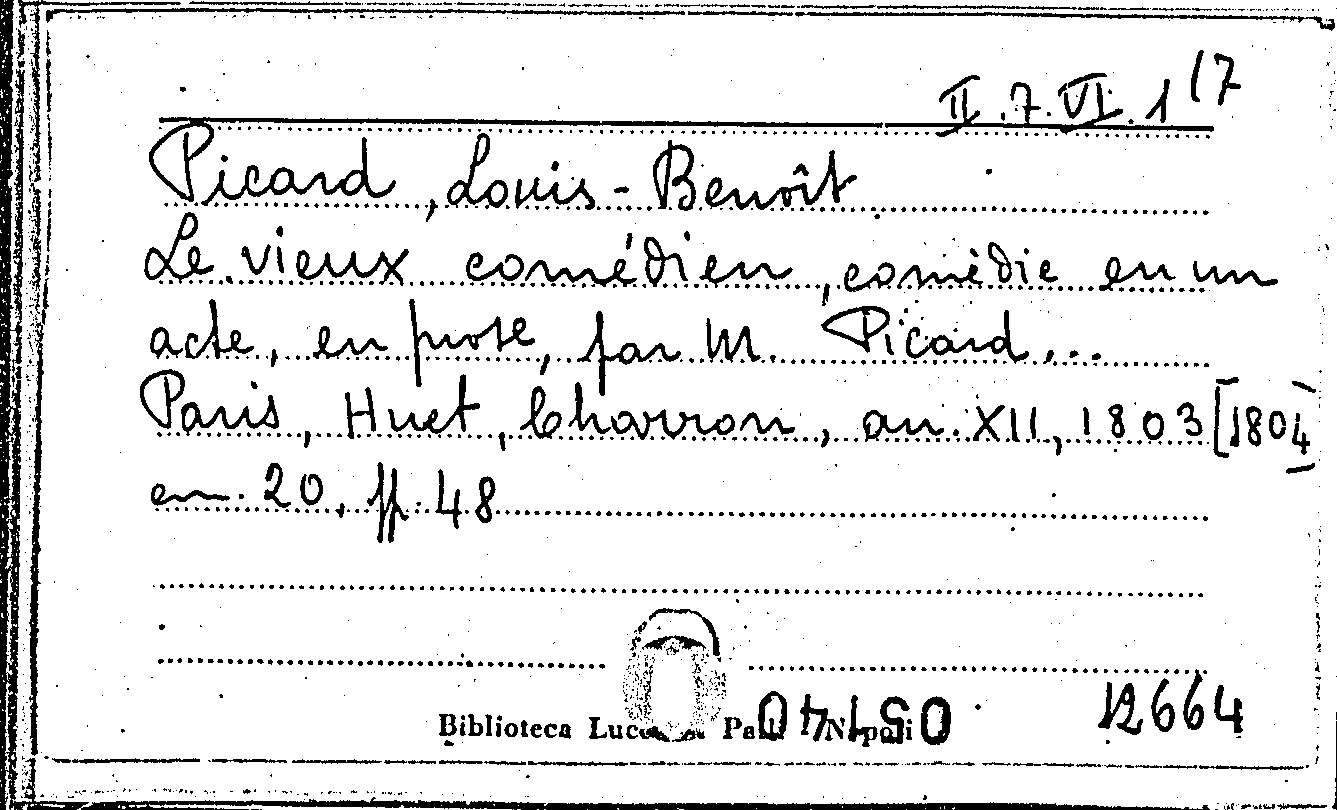 II.7.VI.1 (7
Picard, Louis-Benoît
Le vieux comédien, comédie en un
acte, en prose, par M. Picard...
Paris, Huet, Charron, an XII, 1803 [1804]
in 20, pp. 48
Biblioteca
12664